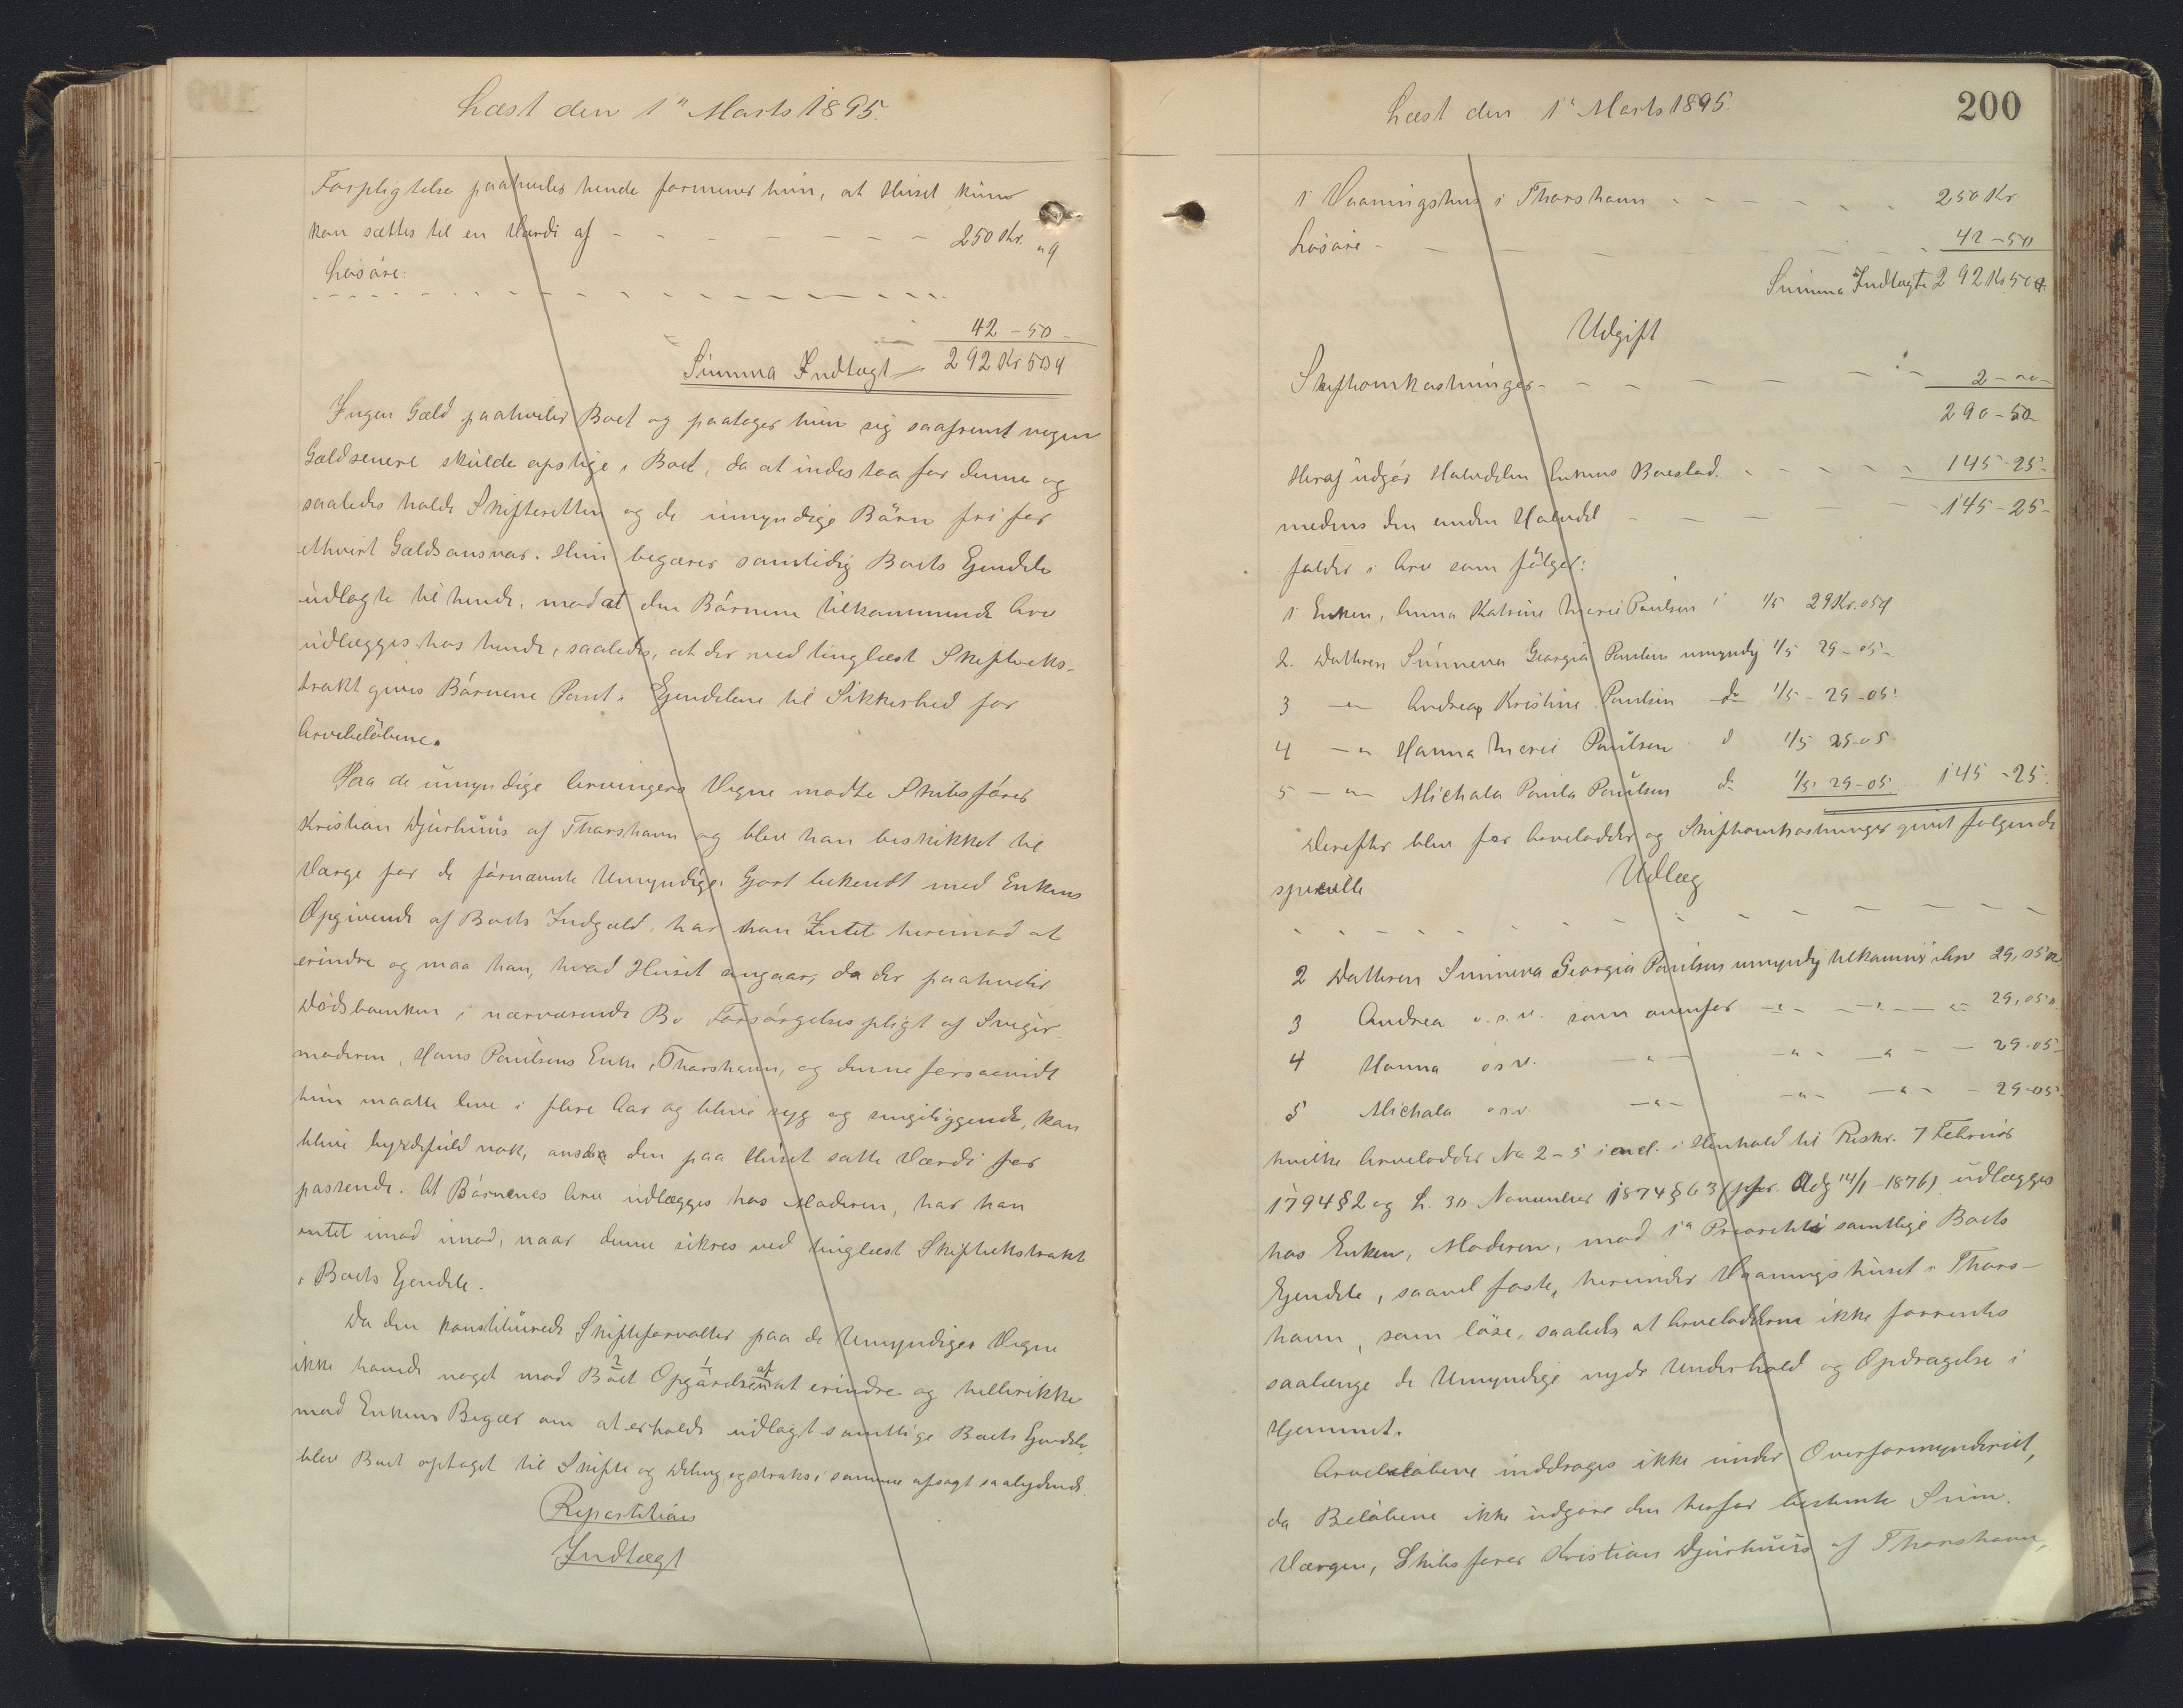 Læst den 1" Marts 1895.
Forpligtelse paahviler hende formener hun, at Huset kun
kan sættes til en Værdi af - - - - - - - - 250 Kr. " q
Løsøre:
- - - - - - - - - - - - - - - -
42 - 50 -
Summa Indtægt 292 Kr 50 q
Ingen Gæld paahviler Boet og paatager hun sig saafremt nogen
Gæld senere skulde opstige i Boet, da at indestaa for denne og
saaledes holde Skifteretten og de umyndige Börn fri for
ethvert Gældsansvar. Hun begærer samtidig Boets Ejendele
udlagte til hende, mod at den Börnene tilkommende Arv
udlægges hos hende, saaledes, at der ved tinglæst Skifteeks-
trakt gives Börnene Pant i Ejendelene til Sikkerhed for
Arvebelöbene.
Paa de umyndige Arvingers Vegne mødte Skibsförer
Kristian Djurhuus af Thorshavn og blev han beskikket til
Værge for de fornævnte Umyndige. Gjort bekendt med Enkens
Opgivende af Boets Indgæld, har han Intet herimod at
erindre og maa han, hvad Huset angaar, da der paahviler
Dödsboenken i nærværende Bo Forsörgelsespligt af Sviger-
moderen, Hans Poulsens Enke i Thorshavn, og denne forsaavidt
hun maatte leve i flere Aar og blive syg og sengeliggende, kan
blive byrdefuld nok, anse den paa Huset satte Værdi for
passende. At Börnenes Arv udlægges hos Moderen, har han
intet imod imod, naar denne sikres ved tinglæst Skifteekstrakt
i Boets Ejendele.
Da den konstituerede Skifteforvalter paa de Umyndiges Vegne
ikke havde noget mod Boet Opgörelsen af at erindre og heller ikke
mod Enkens Begær om at erholde udlagt samtlige Boets Ejendele,
blev Boet optaget til Skifte og Deling og straks i samme afsagt saalydende
Repartition
Indtægt
Læst den 1" Marts 1895. 200
1 Vaaningshus i Thorshavn - - - - - - 250 Kr
Lösöre - - - - - 42 - 50
Summa Indtægt 292 Kr 50 q
Udgift
Skifteomkostninger - - - - - - 2 - " -
290 - 50
Heraf udgör Halvdelen Enkens Boeslod. - - - - - 145 - 25 -
medens den anden Halvdel - - - - - 145 - 25 -
falder i Arv som fölger:
1 Enken, Anna Katrine Marie Poulsen 1/5 29 Kr. 05 q
2. Datteren Sunneva Georgia Poulsen umyndig 1/5 29 - 05 -
3 - " - Andrea Kristine Poulsen do 1/5 - 29 - 05
4 - " - Hanna Marie Poulsen d 1/5 29 - 05
5 - " - Michala Paula Poulsen do 1/5 29 - 05 145 - 25.
Derefter blev for Arvelodder og Skifteomkostninger givet følgende
specielle Udlæg
- - - - - - - - - - - - -
2 Datteren Sunneva Georgia Poulsen umyndig tilkommer Arv 29,05
3 Andrea o.s.v. som ovenfor - " - - " - - " - 29,05
4 Hanna osv. - " - - " - - " - - 29.05
5 Michala osv. - " - - " - - " - - 29-05
hvilke Arvelodder No 2 - 5 incl. i Henhold til Reskr. 7 Februar
1794 § 2 og L. 30 November 1874 § 63 (jfr. Adg 14/1 - 1876) udlægges
hos Enken, Moderen, mod 1a Prioritet i samtlige Boets
Ejendele, saavel faste, herunder Vaaningshuset i Thors-
havn, som löse, saaledes at Arvelodderne ikke forrentes
saalænge de Umyndige nyde Underhold og Opdragelse i
Hjemmet.
Arvebelöbene inddrages ikke under Overformynderiet,
da Belöbene ikke udgöre den herfor bestemte Sum.
Værgen, Skibsförer Kristian Djurhuus af Thorshavn,